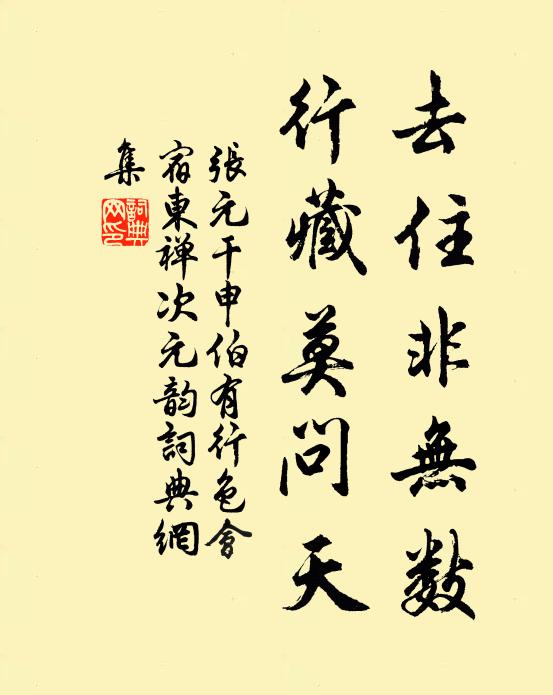 去住非無数
行藏莫問天
張元干申伯有行色會
宿東禅次元韵詞典網
集
詞典網印